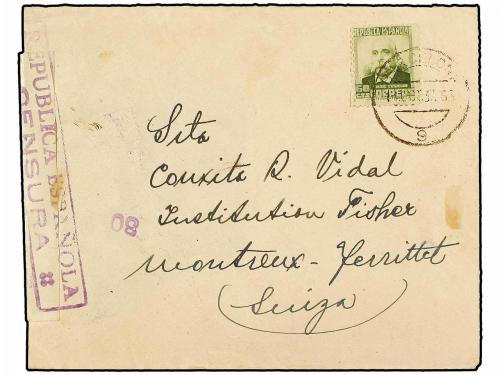 REPUBLICA ESPAÑOLA
CENSURA
REPUBLICA ESPAÑOLA
CORREOS
9
80
Srta
Conxita R. Vidal
Institution Fisher
Montreux-Territtet
(Suiza)